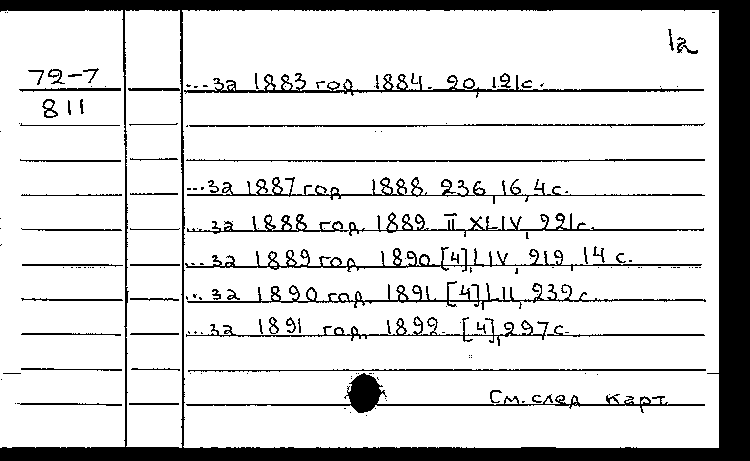 1а
72-7
811
...за 1883 год. 1884. 20, 121с.
...за 1887 год 1888. 236, 16, 4с.
...за 1888 год. 1889. II, XLIV, 221с.
...за 1889 год. 1890. [4], LIV, 219, 14 с.
...за 1890 год. 1891. [4], LII, 232с.
...за 1891 год. 1892. [4], 297с.
См. след карт.